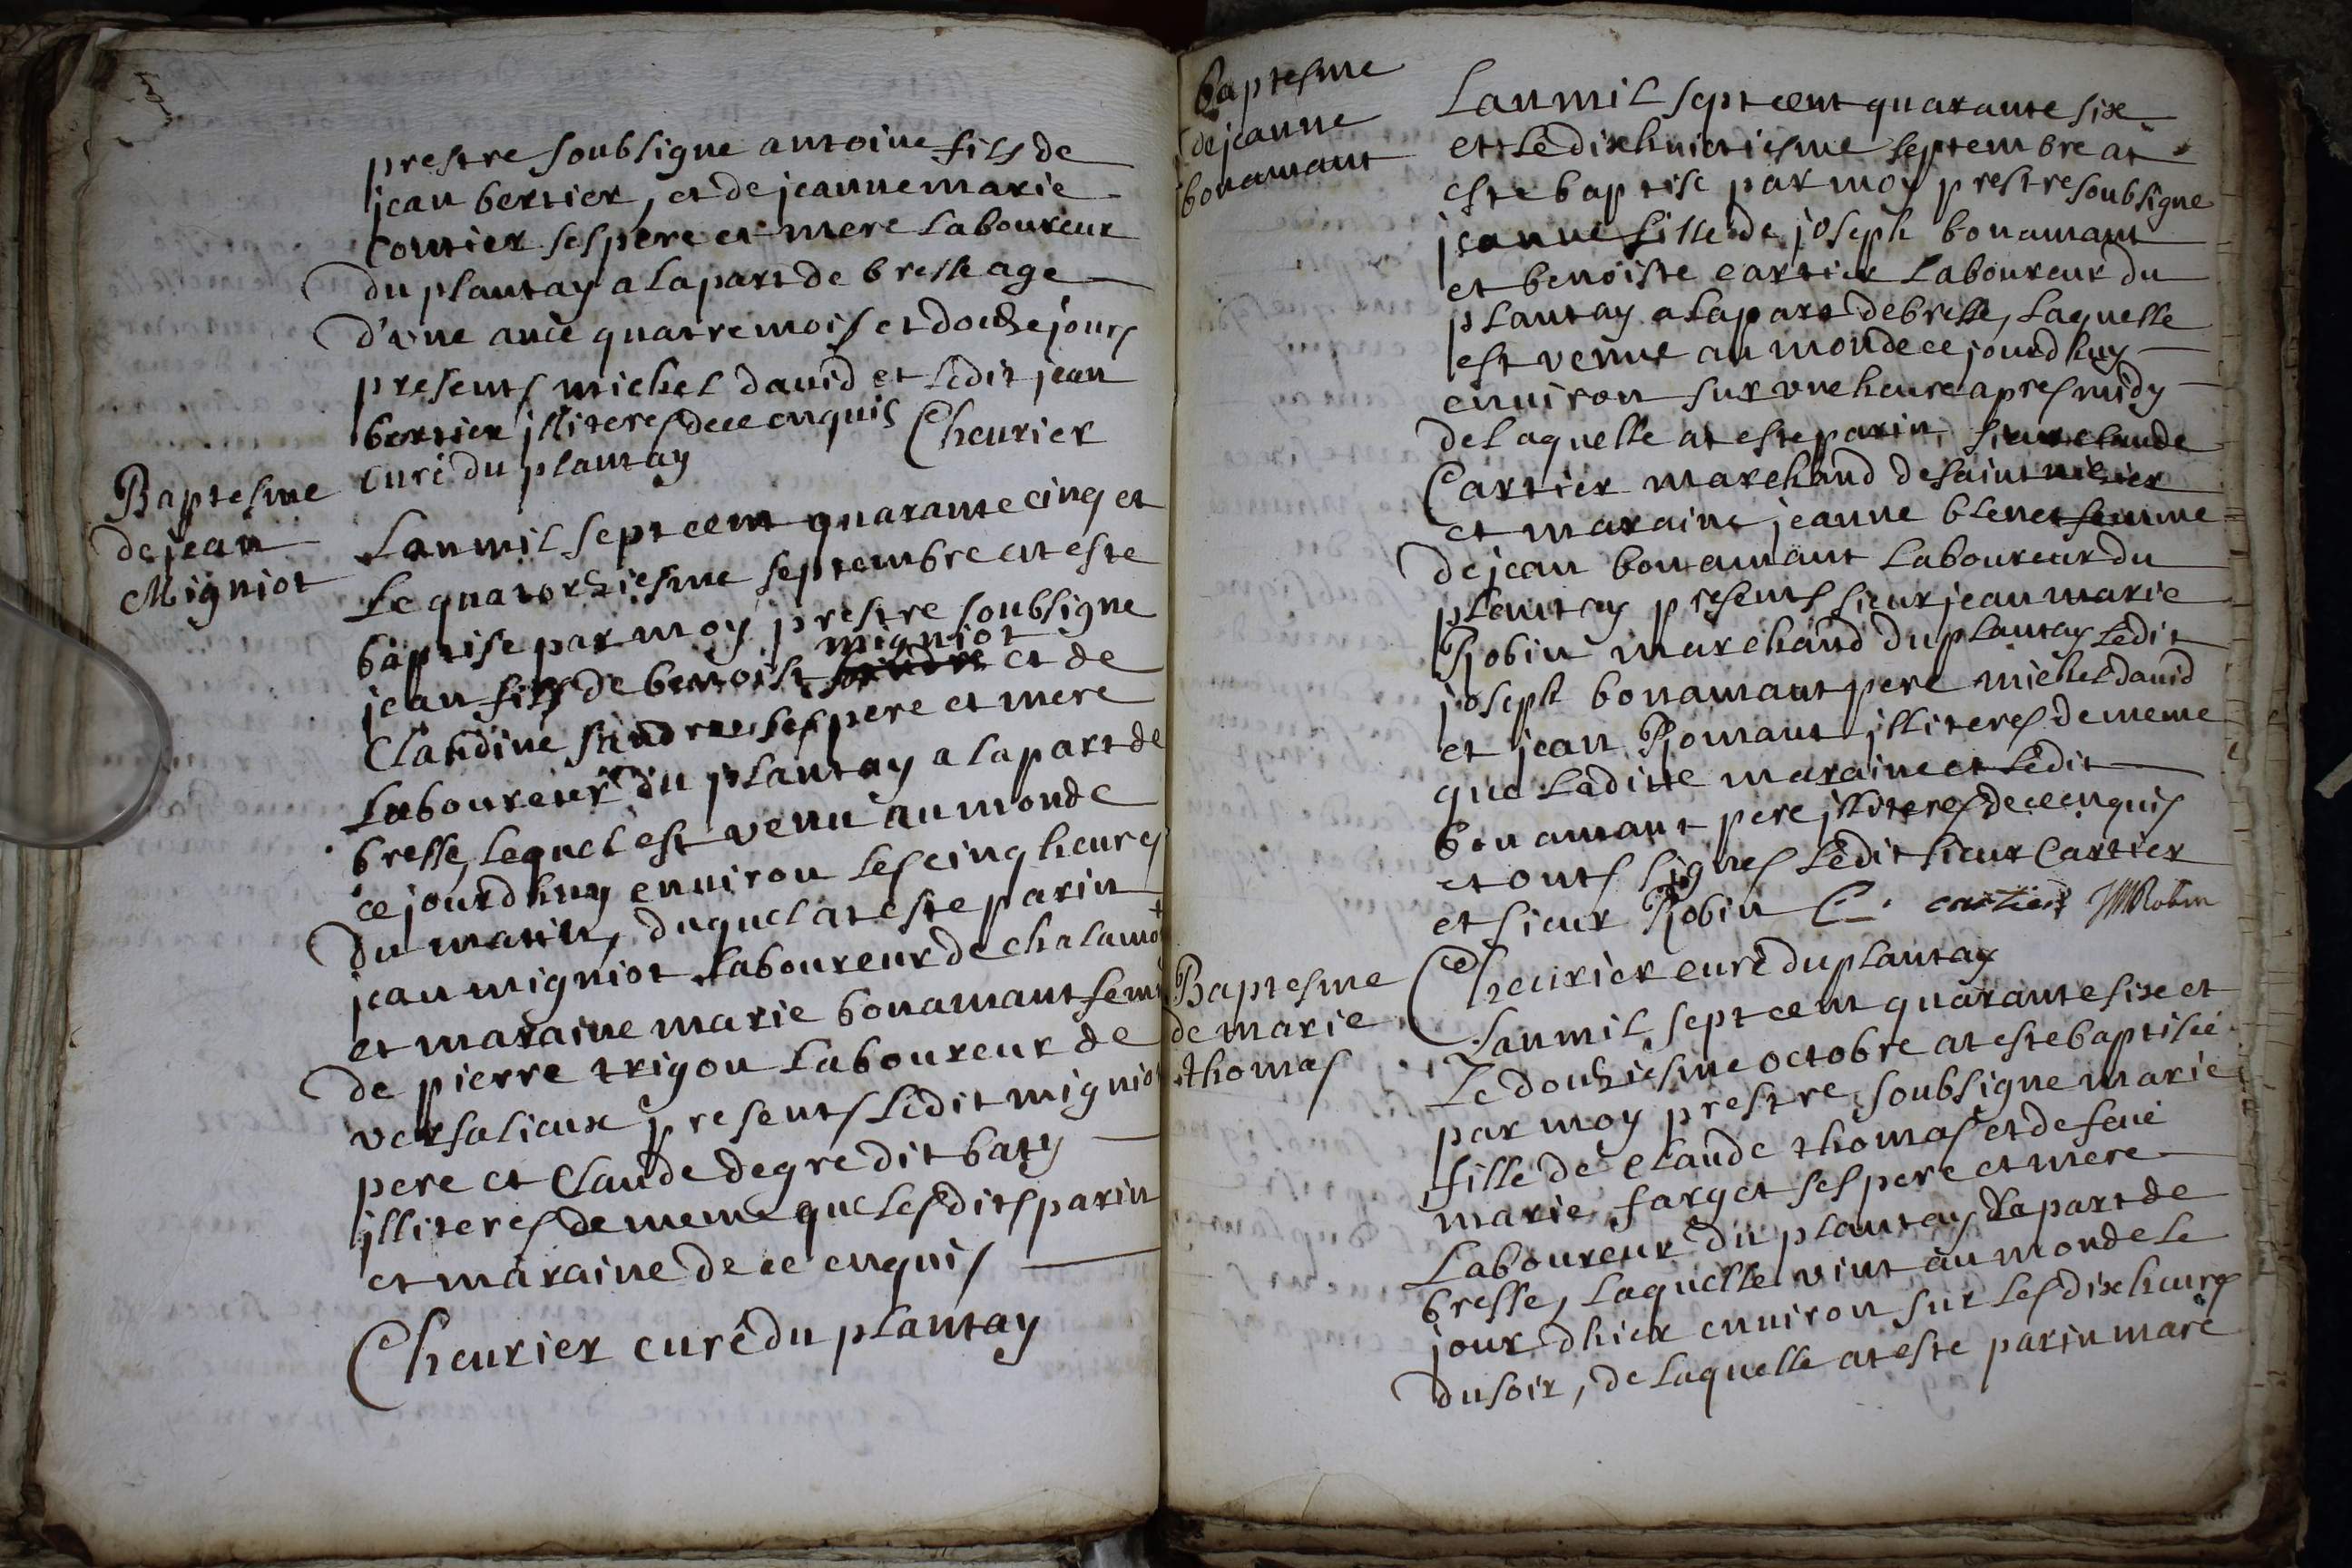 prestre soubsigne antoine fils de
jean bertier, et de jeanne marie
Coutier ses pere et mere laboureur
du plantay a la part de bresse age
d'vne anée quatre mois et douze jours
presents michel david et lédit jean
bertier jlliteres de ce enquis Cheurier
curé du plantay
Baptesme
de jean
Migniot
Lan mil sept cent quarante cinq et
Le quatorziesme septembre at este
baptise par moy prestre soubsigne
migniot
jean fils de benoist et de
Claudine sandrue ses pere et mere
Laboureur du plantay a la part de
bresse, lequel est venu au monde
ce jourdhuy enuiron les cinq heures
du matin, duquel at este parin
jean migniot laboureur de chalamot
et maraine marie bonamant fem
de pierre trigou laboureur de
versalieux presents lédit migniot
pere et Claude degre dit baty
jlliteres de meme que lesdits parin
et maraine de ce enquis
Cheurier curé du plantay
Baptesme
de jeanne
bonamant
Lan mil sept cent quarante six
et le dixhuictiesme septembre at
este baptise par moy prestre soubsigne
jeanne fille de joseph bonamant
et benoiste cartier laboureur du
plantay a la part de bresse, laquelle
est venue au monde ce jourdhuy
enuiron sur vne heure apres midy
de laquelle at este parin, sieur claude
Cartier marchand de saint nizier
et maraine jeanne blenet femme
de jean bonamant laboureur du
plantay presents sieur jean marie
Robin marchand du plantay lédit
joseph bonamant pere michel david
et jean Romant jlliteres de meme
que ladite maraine et lédit
bonamant pere jlliteres de ce enquis
et onts signes lédit sieur Cartier
et sieur Robin C. cartier JMRobin
Cheurier curé du plantay
Baptesme
de marie
thomas
Lan mil sept cent quarante six et
Le douziesme octobre at este baptisée
par moy prestre soubsigne marie
fille de claude thomas et de feue
marie farget ses pere et mere
Laboureur du plantay a la part de
bresse, laquelle vint au monde le
jour dhier enuiron sur les dix heures
du soir, de laquelle at este parin marc